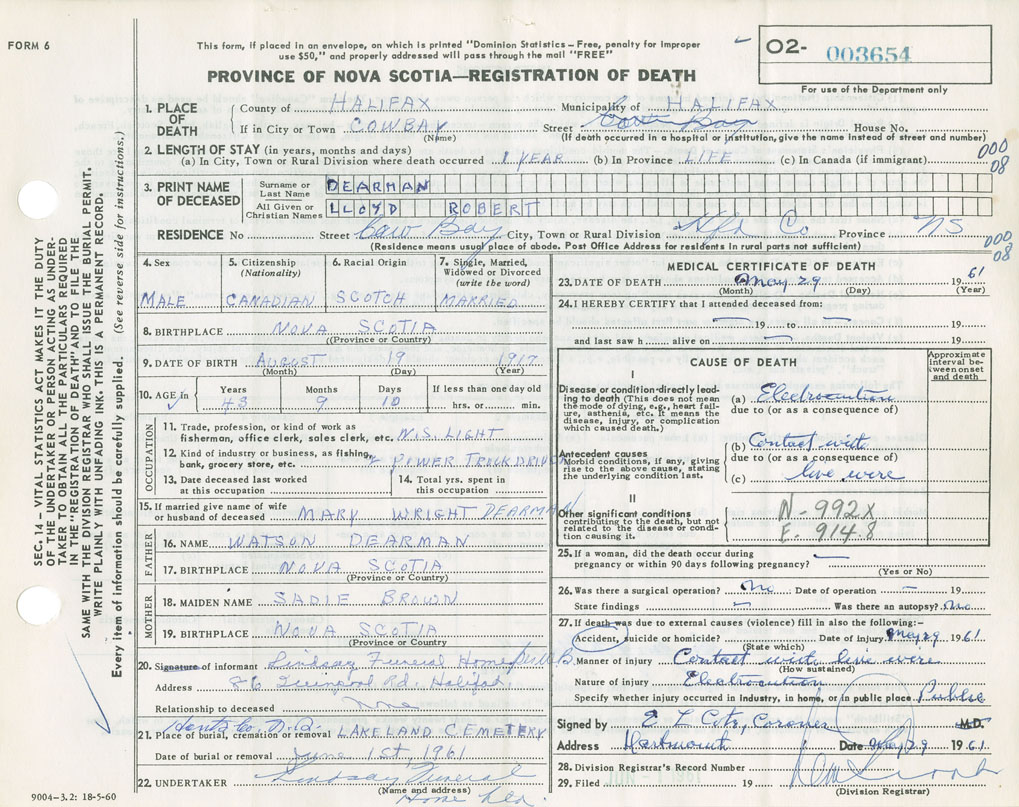 FORM 6
This form, if placed in an envelope, on which is printed "Dominion Statistics – Free, penalty for improper
use $50," and properly addressed will pass through the mail "FREE"
PROVINCE OF NOVA SCOTIA—REGISTRATION OF DEATH
O2- 003654
For use of the Department only
SEC. 14 – VITAL STATISTICS ACT MAKES IT THE DUTY
OF THE UNDERTAKER OR PERSON ACTING AS UNDER-
TAKER TO OBTAIN ALL THE PARTICULARS REQUIRED
IN THE "REGISTRATION OF DEATH" AND TO FILE THE
SAME WITH THE DIVISION REGISTRAR WHO SHALL ISSUE THE BURIAL PERMIT.
WRITE PLAINLY WITH UNFADING INK. THIS IS A PERMANENT RECORD.
Every item of information should be carefully supplied. (See reverse side for instructions.)
1. PLACE OF DEATH
County of HALIFAX Municipality of HALIFAX
If in City or Town COWBAY Street Cow Bay House No.
(Name) (If death occurred in a hospital or institution, give the name instead of street and number)
2. LENGTH OF STAY (in years, months and days)
(a) In City, Town or Rural Division where death occurred 1 YEAR (b) In Province LIFE (c) In Canada (if immigrant)
000
08
3. PRINT NAME OF DECEASED
Surname or Last Name DEARMAN
All Given or Christian Names LLOYD ROBERT
RESIDENCE No Street Cow Bay City, Town or Rural Division Hfx Co Province NS
(Residence means usual place of abode. Post Office Address for residents in rural parts not sufficient)
000
08
4. Sex
MALE
5. Citizenship (Nationality)
CANADIAN
6. Racial Origin
SCOTCH
7. Single, Married, Widowed or Divorced (write the word)
MARRIED
8. BIRTHPLACE NOVA SCOTIA
((Province or Country)
9. DATE OF BIRTH AUGUST 19 1917
(Month) (Day) (Year)
10. AGE in
Years Months Days If less than one day old
43 9 10 hrs. or min.
OCCUPATION
11. Trade, profession, or kind of work as
fisherman, office clerk, sales clerk, etc. N.S. LIGHT
12. Kind of industry or business, as fishing,
bank, grocery store, etc. & POWER TRUCK DRIVER
13. Date deceased last worked
at this occupation
14. Total yrs. spent in
this occupation
15. If married give name of wife
or husband of deceased MARY WRIGHT DEARMAN
FATHER
16. NAME WATSON DEARMAN
17. BIRTHPLACE NOVA SCOTIA
(Province or Country)
MOTHER
18. MAIDEN NAME SADIE BROWN
19. BIRTHPLACE NOVA SCOTIA
(Province or Country)
20. Signature of informant Lindsay Funeral Home
Address Rd. Halifax
Relationship to deceased none
Hants Co. N.S.
21. Place of burial, cremation or removal LAKELAND CEMETERY
Date of burial or removal June 1st, 1961
22. UNDERTAKER Lindsay Funeral
(Name and address)
Home Ltd.
9004-3.2: 18-5-60
MEDICAL CERTIFICATE OF DEATH
23. DATE OF DEATH May 29 1961
(Month) (Day) (Year)
24. I HEREBY CERTIFY that I attended deceased from:
19 to 19
and last saw h alive on 19
CAUSE OF DEATH
Approximate interval between onset and death
I
Disease or condition directly leading to death (This does not mean the mode of dying, e.g., heart failure, asthenia, etc. It means the disease, injury, or complication which caused death.)
(a) Electrocution
due to (or as a consequence of)
(b) Contact with
due to (or as a consequence of)
(c) live wire
Antecedent causes
Morbid conditions, if any, giving rise to the above cause, stating the underlying condition last.
II
Other significant conditions
contributing to the death, but not related to the disease or condition causing it.
N-992X
E. 914.8
25. If a woman, did the death occur during
pregnancy or within 90 days following pregnancy?
(Yes or No)
26. Was there a surgical operation? No Date of operation – 19
State findings – Was there an autopsy? No
27. If death was due to external causes (violence) fill in also the following:-
Accident, suicide or homicide? Date of injury May 29 1961
(State which)
Manner of injury Contact with live wire
(How sustained)
Nature of injury Electrocution
Specify whether injury occurred in industry, in home, or in public place Public
Signed by Coroner M.D.
Address Dartmouth Date May 29 1961
28. Division Registrar's Record Number
29. Filed JUN - 1 1961 19
(Division Registrar)